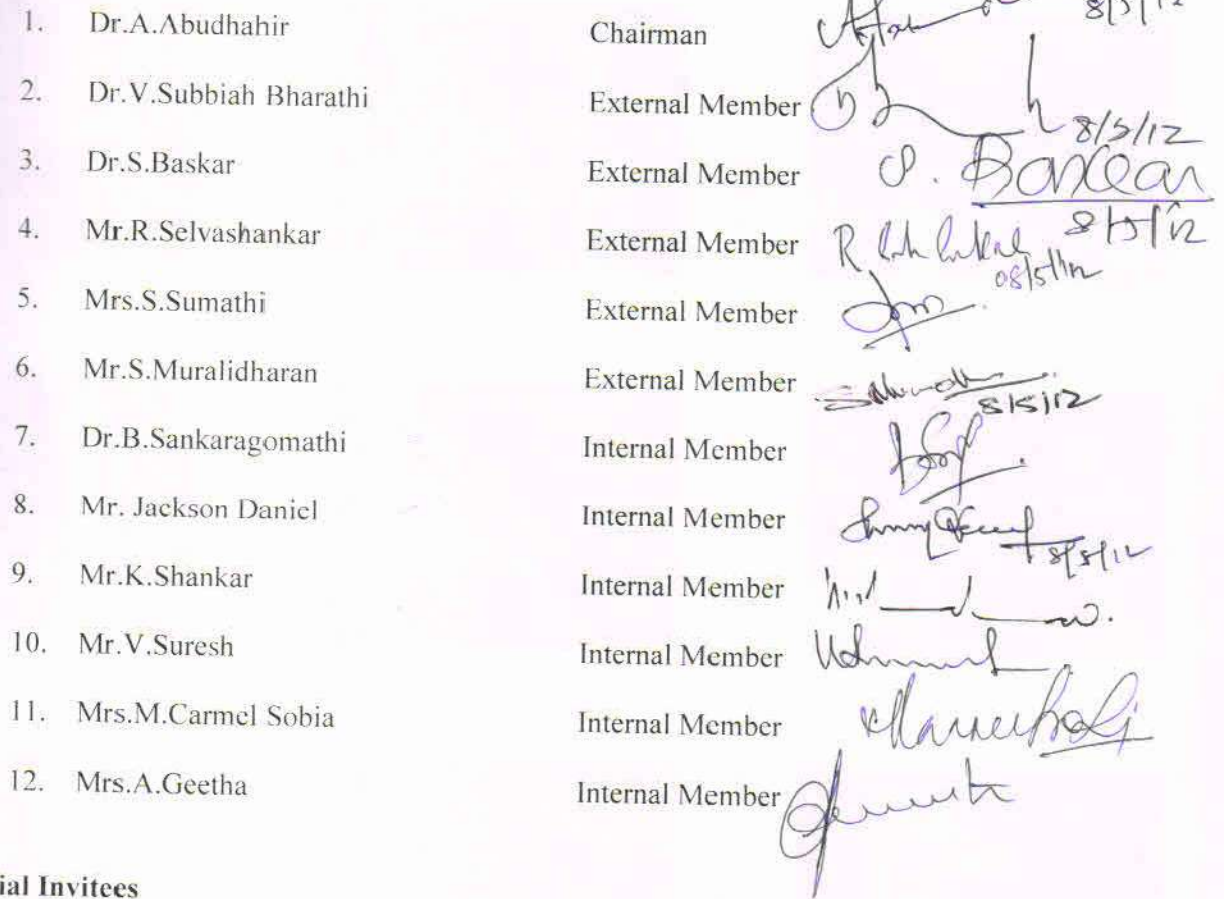 1. Dr.A.Abudhahir Chairman 8/5/12
2. Dr.V.Subbiah Bharathi External Member 8/5/12
3. Dr.S.Baskar External Member S. Baskar 8/5/12
4. Mr.R.Selvashankar External Member R 08/5/12
5. Mrs.S.Sumathi External Member
6. Mr.S.Muralidharan External Member 8/5/12
7. Dr.B.Sankaragomathi Internal Member
8. Mr. Jackson Daniel Internal Member 8/5/12
9. Mr.K.Shankar Internal Member
10. Mr.V.Suresh Internal Member
11. Mrs.M.Carmel Sobia Internal Member
12. Mrs.A.Geetha Internal Member
ial Invitees